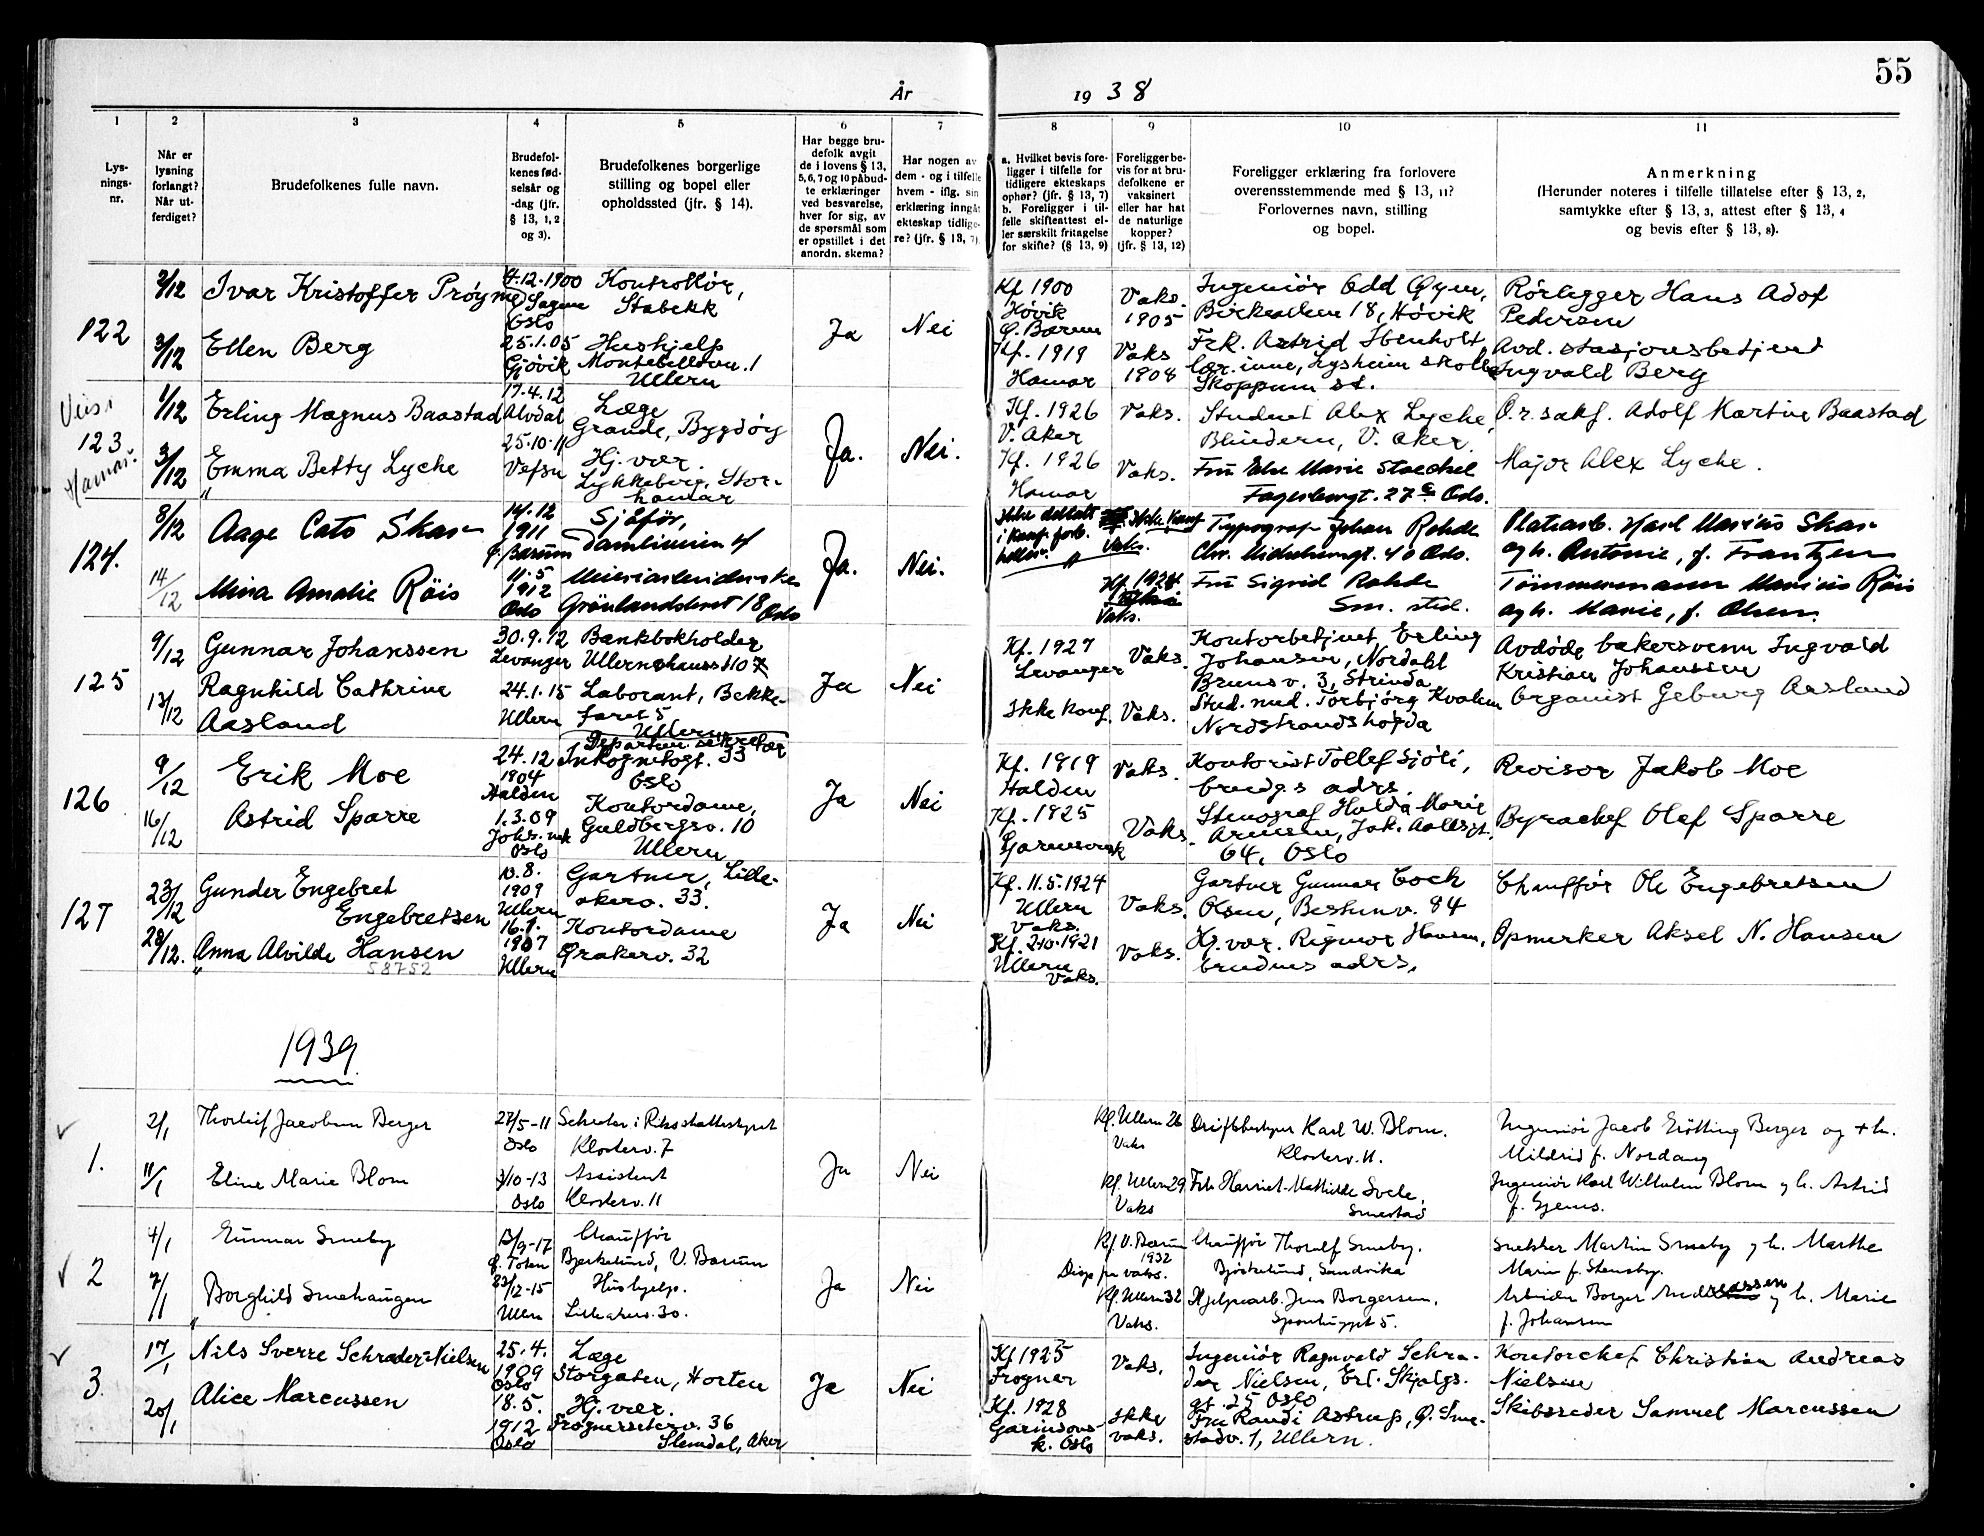 55
År
19 38
1
2
3
4
5
6
7
8
9
10
11
Lys-
nings-
nr.
Når er
lysning
forlangt?
Når ut-
ferdiget?
Brudefolkenes fulle navn.
Brudefol-
kenes fød-
selsår og
-dag (jfr.
§ 13, 1, 2
og 3).
Brudefolkenes borgerlige
stilling og bopel eller
opholdssted (jfr. § 14).
Har begge bru-
defolk avgit
de i lovens § 13,
5, 6, 7 og 10 påbud-
te erklæringer
ved besvarelse,
hver for sig, av
de spørsmål som
er opstillet i det
anordn. skema?
Har nogen av
dem - og i tilfelle
hvem - iflg. sin
erklæring inngåt
ekteskap tidlige-
re? (jfr. § 13, 7).
a. Hvilket bevis fore-
ligger i tilfelle for
tidligere ekteskaps
ophør? (jfr. § 13, 7)
b. Foreligger i til-
felle skifteattest el-
ler særskilt fritagelse
for skifte? (§ 13, 9)
Foreligger be-
vis for at bru-
defolkene er
vaksinert
eller har hat
de naturlige
kopper?
(jfr. § 13, 12)
Foreligger erklæring fra forlovere
overensstemmende med § 13, 11?
Forlovernes navn, stilling
og bopel.
Anmerkning
(Herunder noteres i tilfelle tillatelse efter § 13, 2,
samtykke efter § 13, 3, attest efter § 13, 4
og bevis efter § 13, 8).
122
2/12
Ivar Kristoffer Prøyme
4.12.1900
Sagene
Oslo
Kontrollør,
Stabekk
3/12
Ellen Berg
25.1.05
Gjøvik
Hushjelp
Montebellovn. 1
Ullern
Ja
Nei
Kf 1900
Høvik
Ø. Bærum
Vaks.
1905
Ingeniør Odd Øyen,
Birkealleen 18, Høvik
Rørlegger Hans Adof
Pedersen
Kf. 1919
Hamar
Vaks
1908
Frk. Astrid Ibenholt
lær.inne, Lysheim skole
Skoppum st.
Avd. stasjonsbetjent
Ingvald Berg
123
Hamar.
1/12
Erling Magnus Baastad
17.4.12
Alvdal
Læge
Grande, Bygdøy
3/12
Emma Betty Lyche
25.10.11
Vefsn
Hj. vær.
Lykkeberg, Stor-
hamar
Ja.
Nei.
Kf. 1926
V. Aker
Vaks.
Student Alex Lyche,
Blindern, V. Aker.
O.r.sakf. Adolf Martin Baastad
Kf. 1926
Hamar
Vaks.
Fru Else Marie Stoechel
Fagerborggt. 27 c Oslo.
Major Alex Lyche.
124.
8/12
Aage Cato Skar
14.12
1911
Ø. Bærum
Sjåfør,
Damliveien 4
14/12
Mina Amalie Röis
11.5
1912
Oslo
Meieriarbeiderske
Grönlandsleret 18 Oslo
Ja.
Nei.
Ikke deltatt
i konf. forb.
hellsr.
Ikke Konf
Vaks.
Typograf Johan Rohde
Chr. Michelsensgt. 40 Oslo.
Platearb. Karl Marius Skar
og h. Antonie, f. Frantzen
Kf. 1928
Vaks.
Fru Sigrid Rohde
Sm. sted.
Tömmermann Marius Röis
og h. Marie, f. Olsen.
125
9/12
Gunnar Johanssen
30.9.12
Levanger
Bankbokholder
Ullernchauss 107
13/12
Ragnhild Cathrine
Aasland
24.1.15
Ullern
Laborant, Bekke-
faret 5
Ullern
Ja
Nei
Kf. 1927
Levanger
Vaks.
Kontorbetjent Erling
Johansen, Nordahl
Brunsv. 3, Strinda
Avdøde bakersvenn Ingvald
Kristian Johanssen
Ikke konf.
Vaks.
Stud. med. Torbjørg Kvalum
Nordstrandshøgda
Organist Geburg Aasland
126
9/12
Erik Moe
24.12
1904
Halden
Departem. sekretær
Inkognitogt. 33
Oslo
16/12
Astrid Sparre
1.3.09
Joh's. mk
Oslo
Kontordame,
Guldbergsv. 10
Ullern
Ja
Nei
Kf. 1919
Halden
Vaks.
Kontorist Tollef Sjöli,
brudgs adrs.
Revisor Jakob Moe
Kf. 1925
Garnisonsk
Vaks.
Stenograf Hulda Marie
Arnesen, Jak. Aallsgt.
64, Oslo
Byrachef Olaf Sparre
127
23/12
Gunder Engebret
Engebretsen
10.8.
1909
Ullern
Gartner, Lille-
akerv. 33.
28/12.
Anna Alvilde Hansen
58752
16.9.
1907
Ullern
Kontordame
Ørakerv. 32
Ja
Nei
Kf. 11.5.1924
Ullern
Vaks.
Vaks.
Gartner Gunnar Cock
Olsen, Bestumv. 84
Chauffør Ole Engebretsen
Kf. 2.10.1921
Ullern
Vaks.
Vaks.
Hj. vær. Rigmor Hansen,
brudens adrs.
Opmerker Aksel N. Hansen
1939
1.
2/1
Thorleif Jacobsen Berger
27/5-11
Oslo
Sekretær i Riksskattestyret
Klosterv. 7
11/1
Eline Marie Blom
3/10-13
Oslo
Assistent
Klosterv. 11
Ja
Nei
Kf. Ullern 26
Vaks
Driftbestyrer Karl W. Blom.
Klosterv. 11.
Ingeniør Jacob Brötting Berger og + h.
Mildrid f. Nordang
Kf. Ullern 29
Vaks
Frk Harriet-Mathilde Svele,
Smestad
Ingeniør Karl Wilhelm Blom og h. Astrid
f. Gjems.
2
4/1
Gunnar Smeby
13/9-17
Ø. Toten
Chauffør
Bjerkelund, V. Bærum
7/1
Borghild Smehaugen
23/12-15
Ullern
Hushjelp.
Lilleakerv. 30.
Ja
Nei
Kf. V. Bærum
1932
Disp fra vaks.
Chauffør Thoralf Smeby.
Bjerkelund, Sandvika
Snekker Martin Smeby og h. Marthe
Marie f. Stensby.
Kf. Ullern 32
Vaks.
Hjelpearb. Jens Borgersen.
Arbeider Borger Andreassen og h. Marie
f. Johansen
3.
17/1
Nils Sverre Schrøder-Nielsen
25.4.
1909
Oslo
Læge
Storgaten, Horten
20/1
Alice Marcussen
18.5.
1912
Oslo
Hj. vær.
Frognerseterv. 36
Slemdal, Aker
Ja
Nei
Kf 1925
Frogner
Vaks.
Ingeniør Ragnvald Schrø-
der Nielsen, Erl. Skjalgs.
gt. 25 Oslo
Kontorchef Christian Andreas
Nielsen
Kf. 1928
Garnisons-
k. Oslo
Ikke
vaks.
Fru Randi Astrup, Ø. Sme-
stadv. 1, Ullern.
Skibsreder Samuel Marcussen